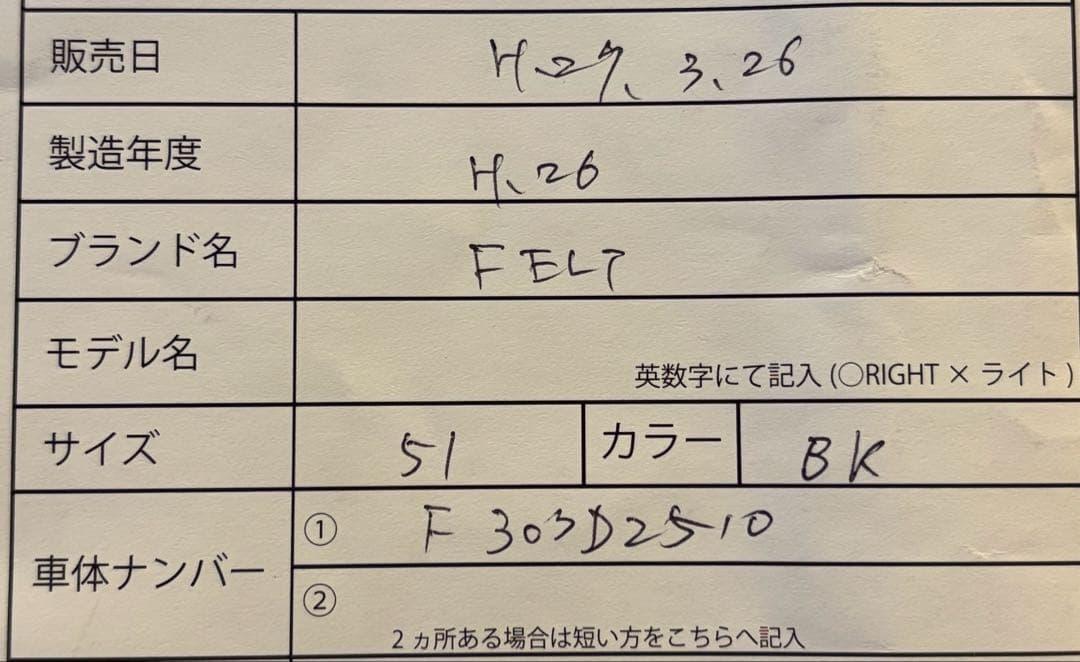 販売日 H.27.3.26
製造年度 H.26
ブランド名 FELT
モデル名
英数字にて記入(○RIGHT × ライト)
サイズ 51 カラー BK
車体ナンバー
① F303D2510
②
2ヵ所ある場合は短い方をこちらへ記入